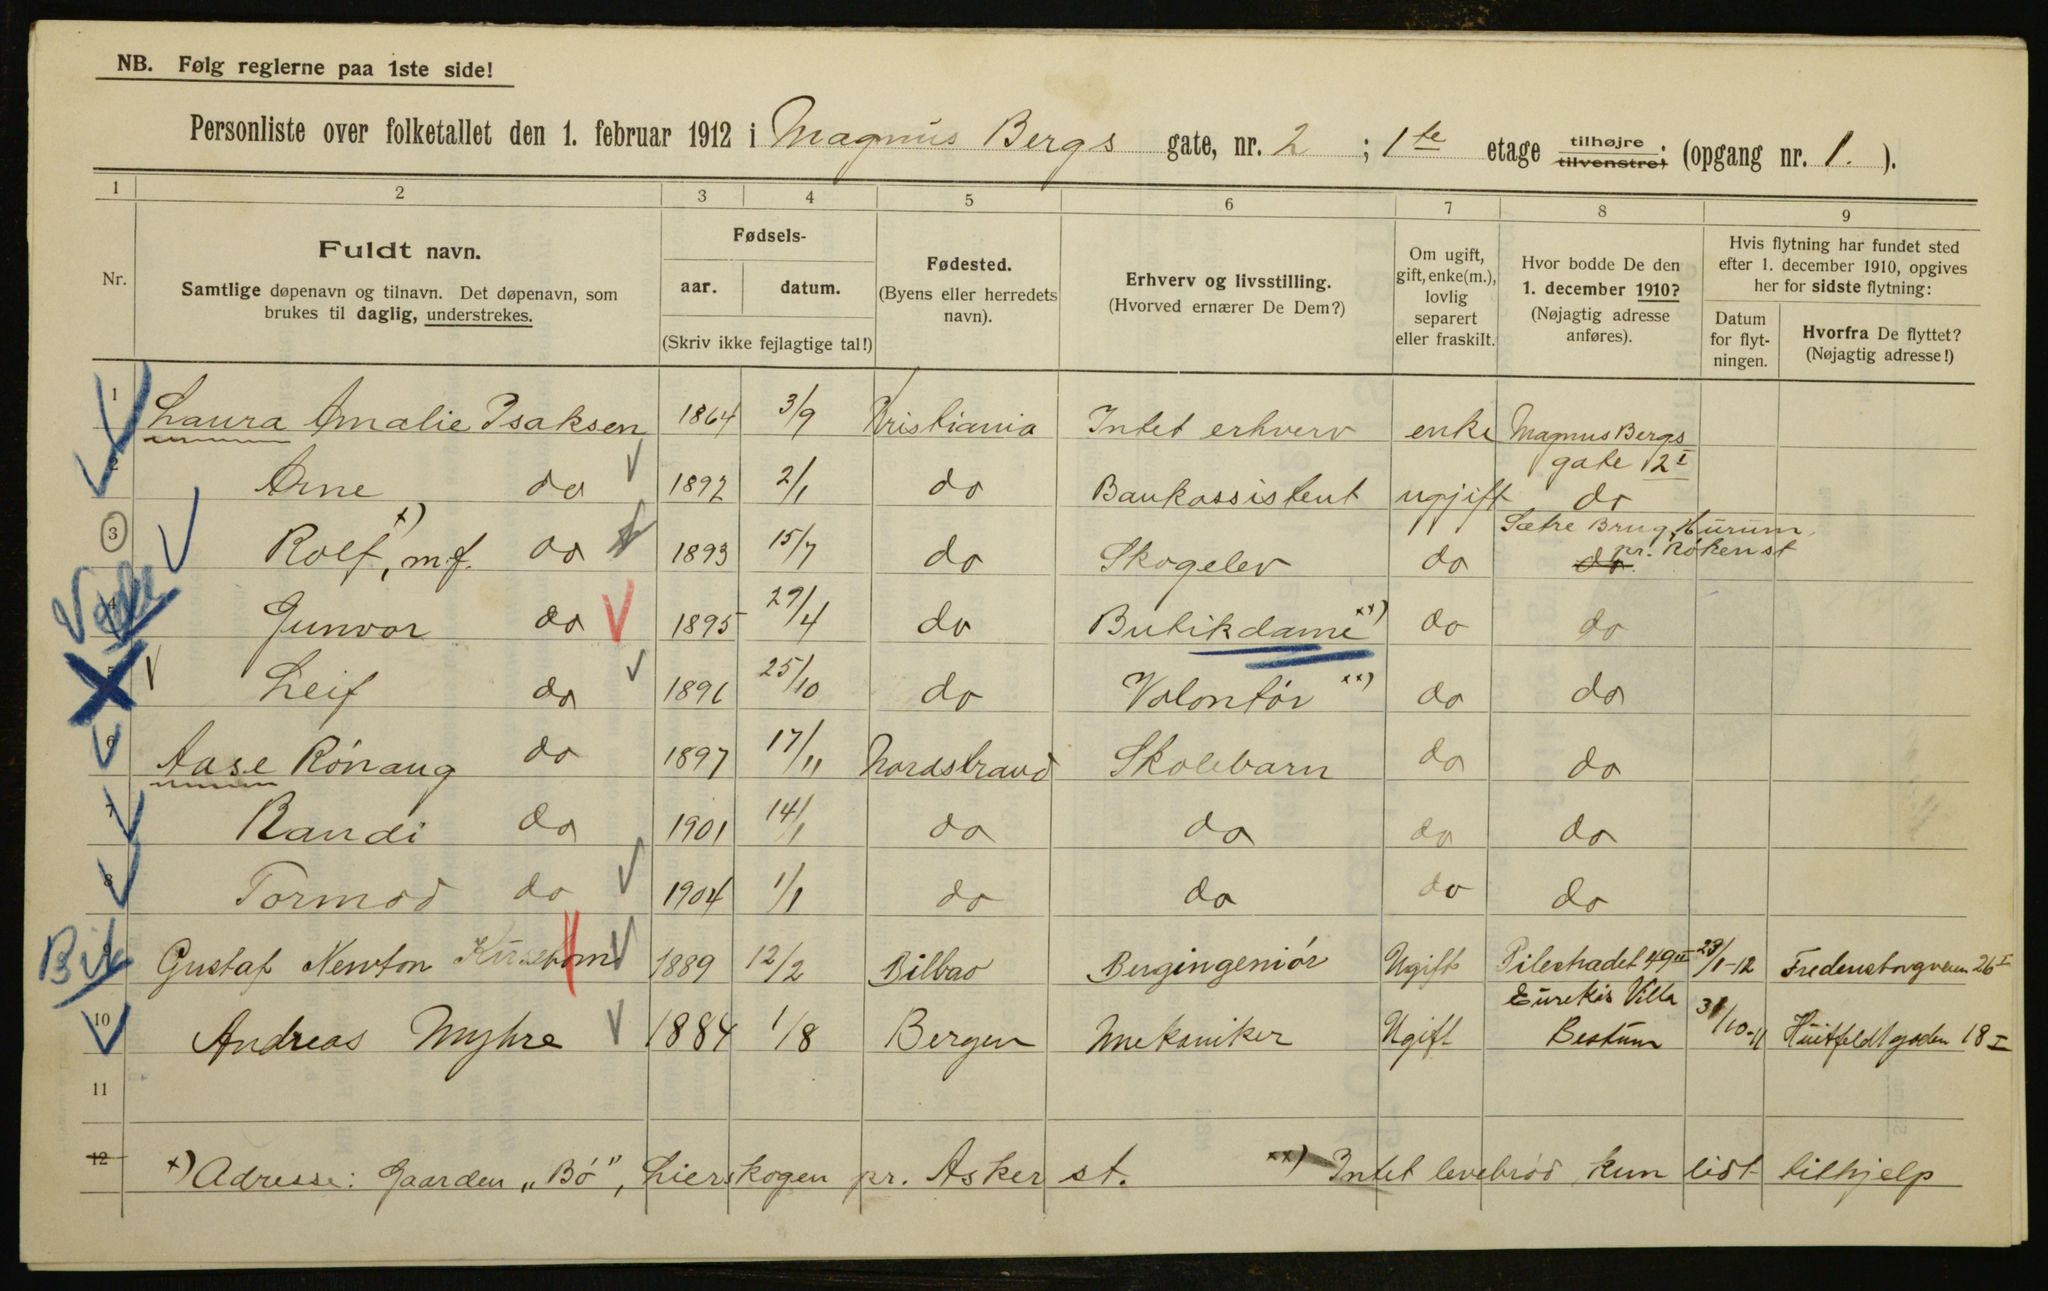 NB. Følg reglerne paa 1ste side!
Personliste over folketallet den 1. februar 1912 i Magnus Bergs gate, nr. 2 ; 1te etage tilhøjre. tilvenstre, (opgang nr. 1. ).
1 2 3 4 5 6 7 8 9
Nr.
Fuldt navn.
Samtlige døpenavn og tilnavn. Det døpenavn, som
brukes til daglig, understrekes.
Fødsels-
aar. datum.
(Skriv ikke fejlagtige tal!)
Fødested.
(Byens eller herredets
navn).
Erhverv og livsstilling.
(Hvorved ernærer De Dem?)
Om ugift,
gift, enke(m.),
lovlig
separert
eller fraskilt.
Hvor bodde De den
1. december 1910?
(Nøjagtig adresse
anføres).
Hvis flytning har fundet sted
efter 1. december 1910, opgives
her for sidste flytning:
Datum
for flyt-
ningen.
Hvorfra De flyttet?
(Nøjagtig adresse!)
1 Laura Amalie Isaksen 1864 3/9 Kristiania Intet erhverv enke Magnus Bergs
gate 2 I
2 Arne do 1892 2/1 do Bankassistent ugift do
3 Rolf, x) m.f. do 1893 15/7 do Skogelev do Sætre Brug, Hurum,
pr. Røken st
do
4 Gunvor do 1895 29/4 do Butikdame xx) do do
5 Leif do 1896 25/10 do Volontør xx) do do
6 Aase Rónaug do 1897 17/11 Nordstrand Skolebarn do do
7 Randi do 1901 14/1 do do do do
8 Tormod do 1904 1/1 do do do do
Bil 9 Gustaf Newton 1889 12/2 Bilbao Bergingeniór Ugift Pilestradet 49 III 29/1-12 Fredensborgveien 26 I
10 Andreas Myhre 1884 1/8 Bergen Mekaniker Ugift Villa
Bestum 31/10-11 Huitfeldtgaden 18 I
11
12 x) Adresse: Gaarden „Bö”, Lierskogen pr. Asker st. xx) Intet levebrød, kun lidt tilhjelp